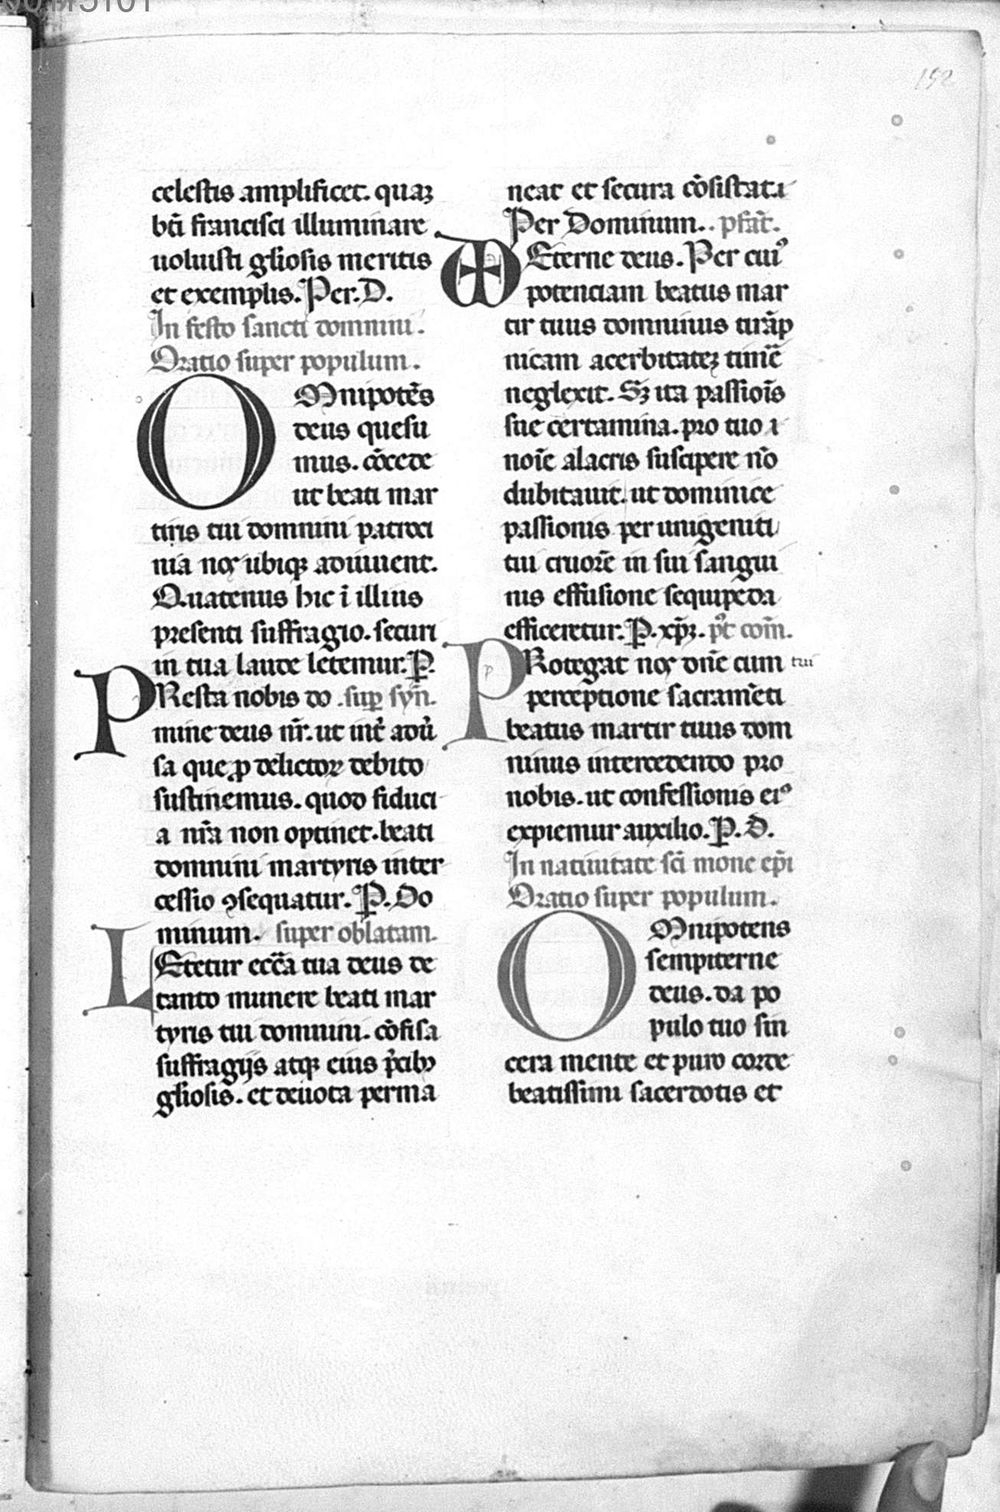 192
celestis amplificet. quaꝫ
bt̄i francisci illuminare
uoluisti gl̄iosis meritis
et exemplis. Per. D.
In festo sancti domnini.
Oratio super populum.
OMnipotēs
deus quesu
mus. cōcede
ut beati mar
tiris tui domnini patroci
nia noꝝ ubiqꝫ adiuuent.
Quatenus hic ī illius
presenti suffragio. securi
in tua laude letemur. P̲.
PResta nobis do .suꝑ syn̄.
mine deus nr̄. ut int̄ adu̓
sa que ꝓ delictoꝝ debito
sustinemus. quod fiduci
a nr̄a non optinet. beati
domnini martyris inter
cessio ꝯsequatur. P̲. Do
minum. super oblatam.
LEtetur ecc̄a tua deus de
tanto munere beati mar
tyris tui domnini. cōfisa
suffragijs atqꝫ eius p̄cibꝫ
gl̄iosis. et deuota perma
neat et secura cōsistat.
Per Dominum. . pfat̄.
Eterne deus. Per cuiꝰ
potenciam beatus mar
tir tuus domninus tirāp
nicam acerbitateꝫ timē
neglexit. Sꝫ ita passiōis
sue certamina. pro tuo i
noīe alacris suscipere nō
dubitauit. ut dominice
passionis per unigeniti
tui cruorē in sui sangui
nis effusione sequipeda
efficeretur. P̲. xp̄ꝫ. pꝰt com̄.
PRotegat noꝝ dn̄e cum tui
perceptione sacramēti
beatus martir tuus dom
ninus intercedendo pro
nobis. ut confessionis eiꝰ
expiemur auxilio. P̲. D.
In natiuitate sc̄i mone ep̄i
Oratio super populum.
OMnipotens
sempiterne
deus. da po
pulo tuo sin
cera mente et puro corde
beatissimi sacerdotis et